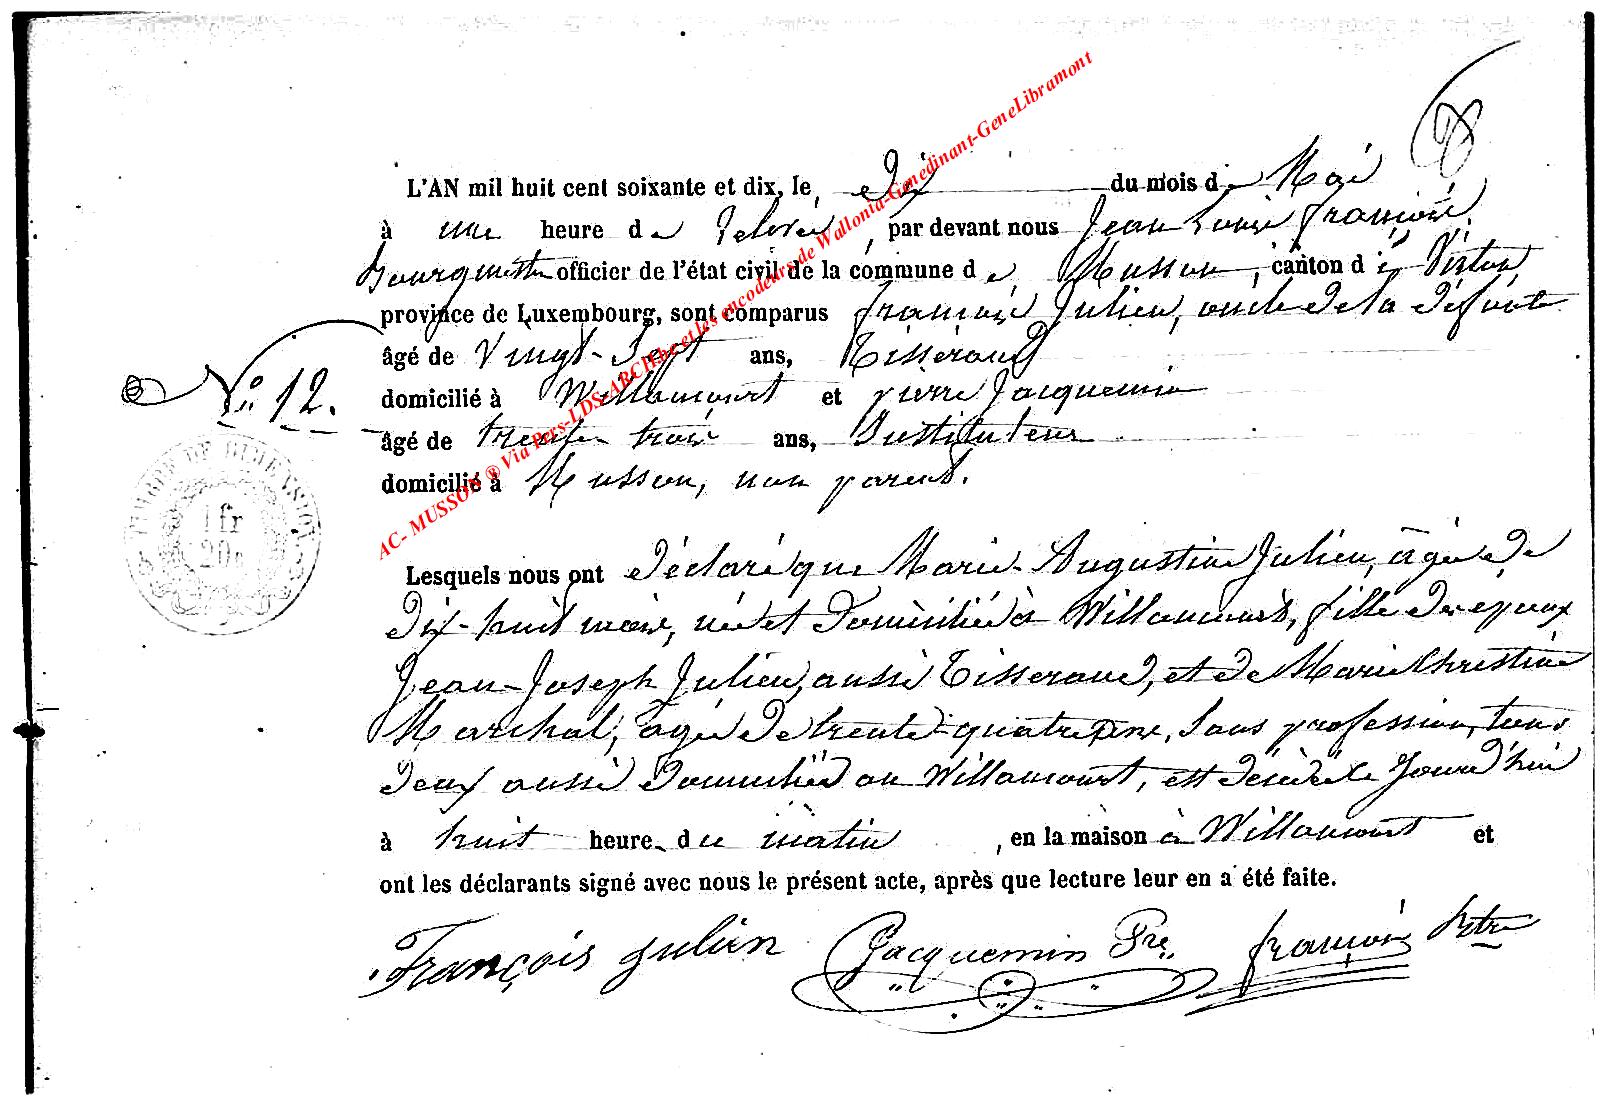 L'AN mil huit cent soixante et dix, le, dix du mois de Mai
à une heure de relevée, par devant nous Jean Louis françois,
bourgmestre officier de l'état civil de la commune de Musson, canton de Virton,
province de Luxembourg, sont comparus françois Julien, oncle de la défunte
âgé de vingt-sept ans, Tisserand
N° 12.
domicilié à Willancourt et pierre Jacquemin
âgé de trente trois ans, Instituteur
domicilié à Musson, non parent.
TIMBRE DE DIMENSION
1 fr
20c
Lesquels nous ont déclaré que Marie-Augustine Julien, âgée de
dix-huit mois, née et domiciliée à Willancourt, fille des époux
Jean-Joseph Julien, aussi Tisserand, et de Marie Christine
Marchal, âgée de trente-quatre ans, sans profession, tous
deux aussi domiciliés au Willancourt, est décédée le jourd'hui
à huit heure du matin, en la maison à Willancourt et
ont les déclarants signé avec nous le présent acte, après que lecture leur en a été faite.
François Julien Jacquemin Pre françois
AC- MUSSON ® Via Pers-LDS-ARCHbe et les encodeurs de Wallonia-Genedinant-GeneLibramont